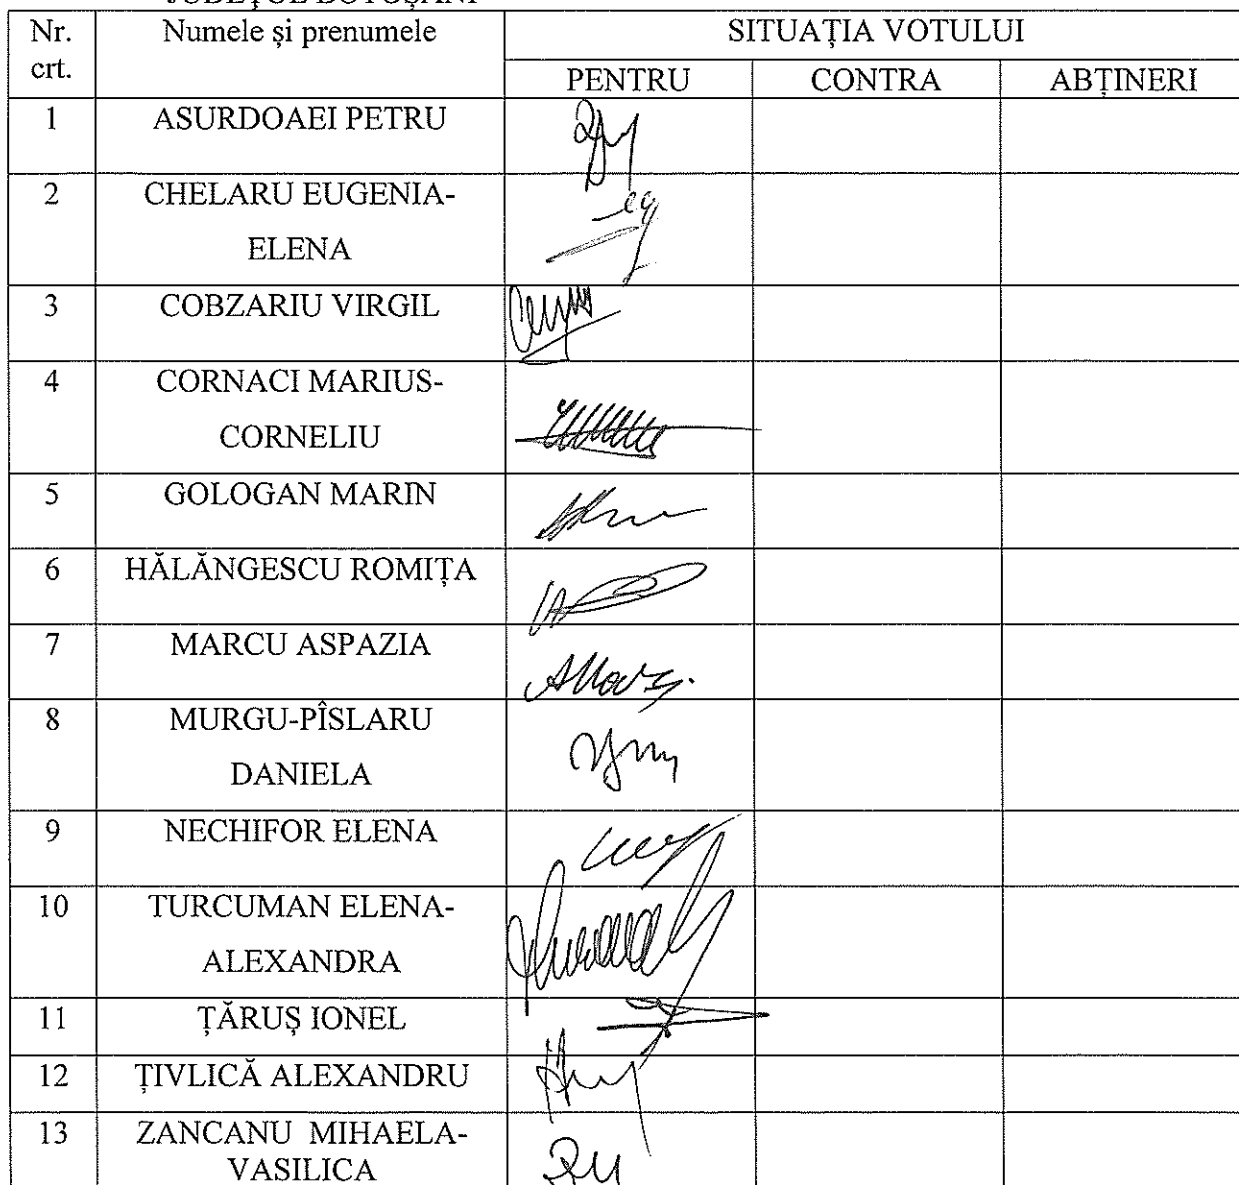 JUDEŢUL BOTOŞANI
Nr. crt. Numele și prenumele SITUAȚIA VOTULUI
PENTRU CONTRA ABȚINERI
1 ASURDOAEI PETRU
2 CHELARU EUGENIA-
ELENA
3 COBZARIU VIRGIL
4 CORNACI MARIUS-
CORNELIU
5 GOLOGAN MARIN
6 HĂLĂNGESCU ROMIȚA
7 MARCU ASPAZIA
8 MURGU-PÎSLARU
DANIELA
9 NECHIFOR ELENA
10 TURCUMAN ELENA-
ALEXANDRA
11 ȚĂRUȘ IONEL
12 ȚIVLICĂ ALEXANDRU
13 ZANCANU MIHAELA-
VASILICA